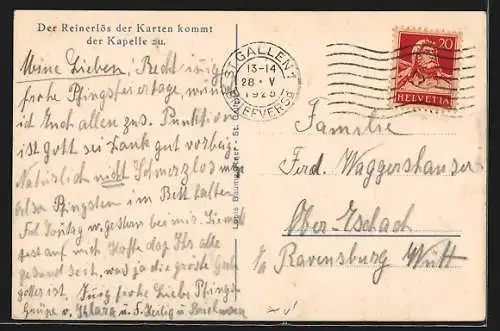 Der Reinerlös der Karten kommt
der Kapelle zu.
Meine Lieben! Recht innig
frohe Pfingsfeiertage wünsche
ich Euch allen zus. Punktion
ist Gott sei Dank gut vorbei.
Natürlich nicht Schmerzlos muss
also Pfingsten im Bett halten.
Frl. gestern bei mir.
auf mich. Hoffe daß Ihr alle
gesund seid, was ja die größte Gabe
Gottes ist. Innig frohe liebe Pfingst
Grüße v. Klara u. S.
Louis Baumgartner, St. Gallen
ST. GALLEN 1
13-14
28 · V
1925
BRIEFVERSAND
20
HELVETIA
Familie
Ferd. Waggershauser
Ober-Eschach
Ravensburg Württ